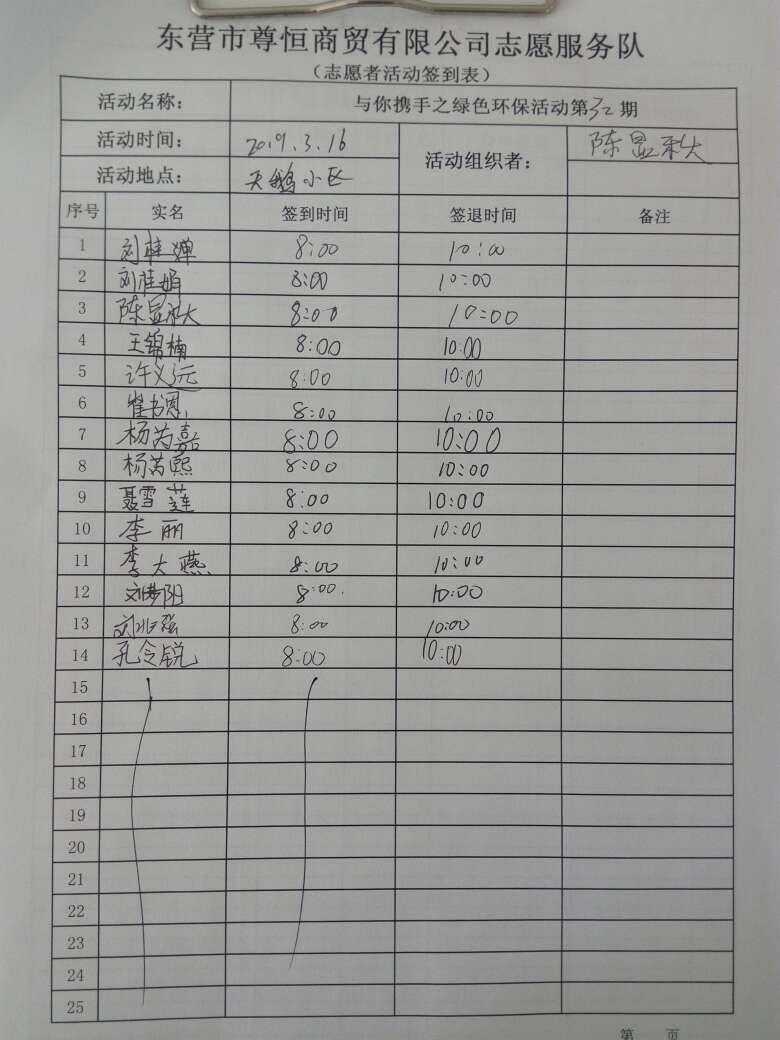 东营市尊恒商贸有限公司志愿服务队
（志愿者活动签到表）
活动名称： 与你携手之绿色环保活动第 期
活动时间： 2019.3.16 活动组织者： 陈显秋
活动地点： 天鹅小区
序号 实名 签到时间 签退时间 备注
1 刘桂婵 8:00 10:00
2 刘桂娟 8:00 10:00
3 陈显秋 8:00 10:00
4 王锦楠 8:00 10:00
5 许义远 8:00 10:00
6 崔书恩 8:00 10:00
7 杨芮嘉 8:00 10:00
8 杨芮熙 8:00 10:00
9 聂雪莲 8:00 10:00
10 李丽 8:00 10:00
11 李大燕 8:00 10:00
12 刘梦阳 8:00. 10:00
13 刘 强 8:00 10:00
14 孔令锐 8:00 10:00
15
16
17
18
19
20
21
22
23
24
25
第 页